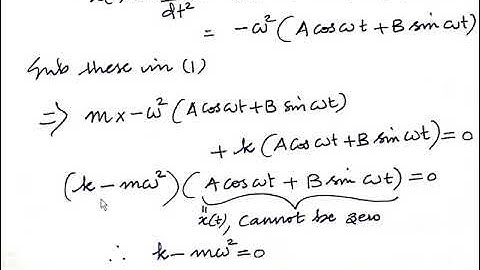 dt²
= -ω² (A cos ωt + B sin ωt)
Sub these in (1)
⇒ m x -ω² (A cos ωt + B sin ωt)
+ k (A cos ωt + B sin ωt) = 0
(k - mω²) (A cos ωt + B sin ωt) = 0
"
x(t), cannot be zero
∴ k - mω² = 0